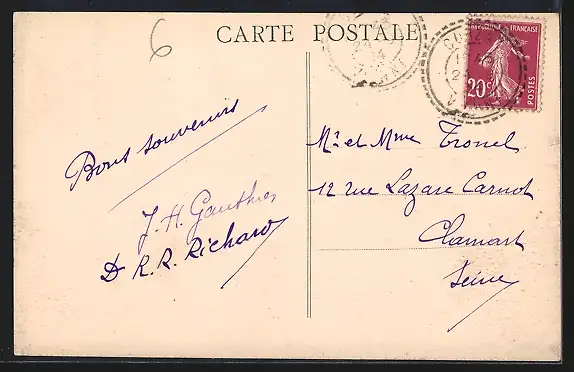 6
CARTE POSTALE
REPUBLIQUE FRANÇAISE
20c
POSTES
Bons souvenirs
J. H. Gauthier
Dr R. R. Richard
Mr et Mme Tronel
12 rue Lazare Carnot
Clamart
Seine